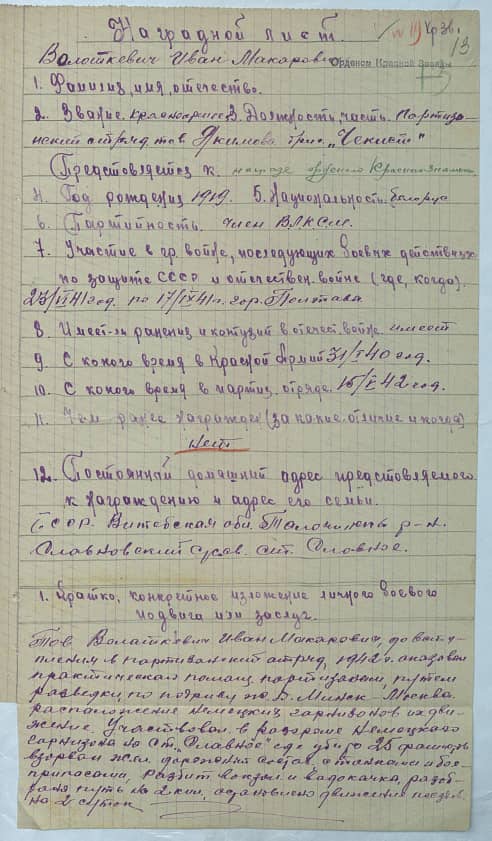 Наградной лист.
Кр Зв.
13
Волоткевич Иван Макарович
Орденом Красной Звезды
1. Фамилия, имя, отечество.
2. Звание. красноармеец 3. Должность, часть. Партиза-
нский отряд тов. Якимова бриг. "Чекист"
Предстовляется к. награде орденом Красная знамени
4. Год рождения 1919. 5. Национальность. белорус
6. Партийность. член ВЛКСМ.
7. Участие в гр. войне, последующих боевых действиях
по защите СССР и отечествен. войне (где, когда).
23/VI 41 год. по 17/IX 41 г. гор. Полтава
8. Имеет-ли ранения и контузии в отечест. войне. имеет
9. С какого время в Красной Армии 31/I 40 год.
10. С какого время в партиз. отряде. 42 год.
11. Чем ранее награжден (за какие отличие и когда)
нет
12. Постоянный домашний адрес предстовляемого
к награждению и адрес его семьи.
БССР. Витебская обл. Талочинский р-н.
Славновский с/сов. ст. Славное.
1. Кратко, конкретное изложение личного боевого
подвига или заслуг.
Тов Волоткевич Иван Макарович, до всту-
пления в партизанский отряд, 1942 г. оказовал
практическая помощ партизанам, путем
разведки, по Минск-Москва.
расположение немецких гарнизонов их дви-
жение. Участвовал в разгроме немецкого
гарнизона на ст. "Славное" где убито 25 фашистов
взорван жел. дорожный состав с танками и бое-
припасами, разбит вокзал и вадокачка, разоб-
рана путь на 2 клм, остановлено движение поездов
на 2 суток